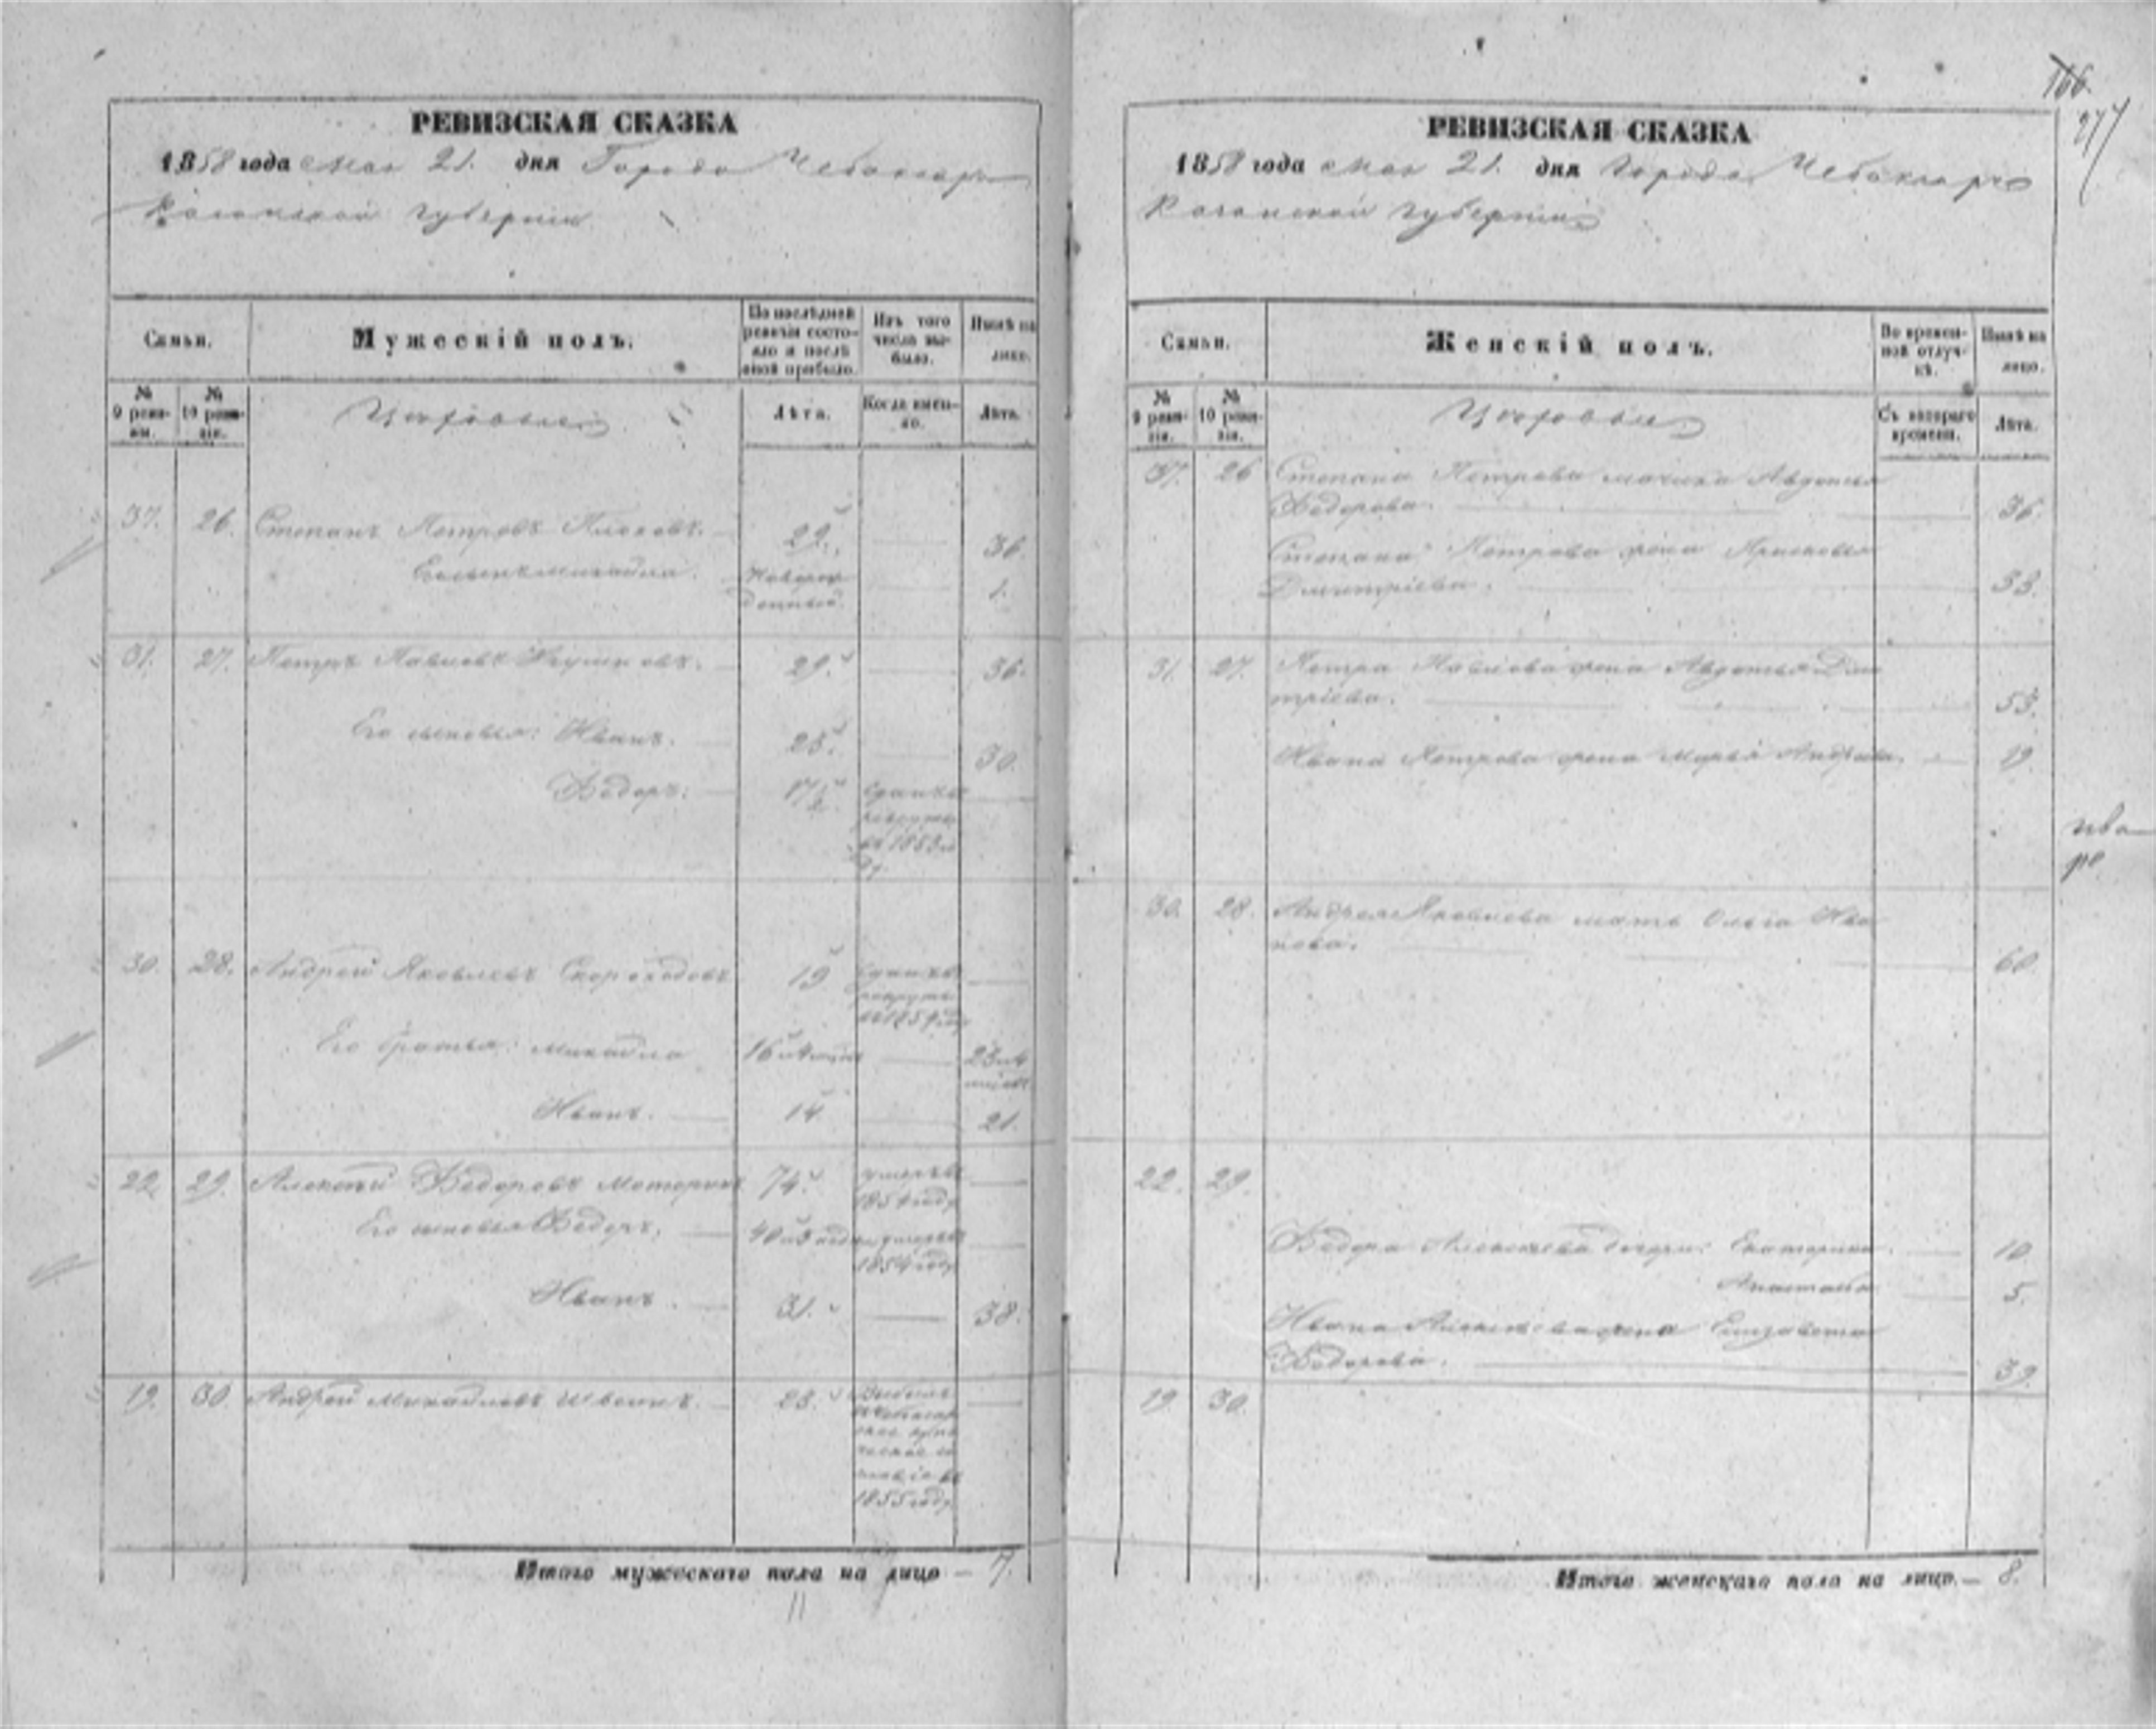 РЕВИЗСКАЯ СКАЗКА
1858 года Мая 21. дня Города Чебоксаръ
Казанской губернии
Семьи.
Мужескій полъ.
По послѣдней ревизіи состояло и послѣ оной прибыло.
Изъ того числа выбыло.
Нынѣ на лицо.
№ 9 ревизіи.
№ 10 ревизіи.
Цеховые
Лѣта.
Когда именно.
Лѣта.
37. 26. Степанъ Петровъ 29. 36.
Его сынъ Михайла. Новорожденный. 1.
31. 27. Петръ Павловъ 29. 36.
Его сыновья: Иванъ. 23. 30.
Ѳедоръ. 17 1/2. сданъ въ рекруты въ 1853 году
30. 28. Андрей Яковлевъ Скороходовъ 19 сданъ въ рекруты въ 1854 году
Его братья: Михайла 16 23
Иванъ. 14. 21.
22. 29. Алексѣй Ѳедоровъ Моторинъ 74. умеръ въ 1854 году
Его сыновья Ѳедоръ. 40 умеръ въ 1854 году
Иванъ. 31. 38.
19. 30. Андрей Михайловъ Швеинъ. 23. въ Чебоксарское купеческое въ 1855 году
Итого мужескаго пола на лицо — 7.
11
166.
277
РЕВИЗСКАЯ СКАЗКА
1858 года Мая 21. дня Города Чебоксаръ
Казанской губерніи
Семьи.
Женскій полъ.
Во временной отлучкѣ.
Нынѣ на лицо.
№ 9 ревизіи.
№ 10 ревизіи.
Цеховые
Съ котораго времени.
Лѣта.
37. 26 Степана Петрова мачиха Авдотья
Ѳедорова. 36.
Степана Петрова жена Прасковья
Дмитріева. 33.
31. 27. Петра Павлова жена Авдотья Дми
тріева. 53.
Ивана Петрова жена Марья Андреева. 19.
30. 28. Андрея Яковлева мать Ольга Ива
нова. 60.
22. 29.
Ѳедора Алексѣева дочери: Екатерина. 10.
Анастасія 5.
Ивана Алексѣева жена Елизавета
Ѳедорова. 39.
19 30.
Итого женскаго пола на лицо — 8.